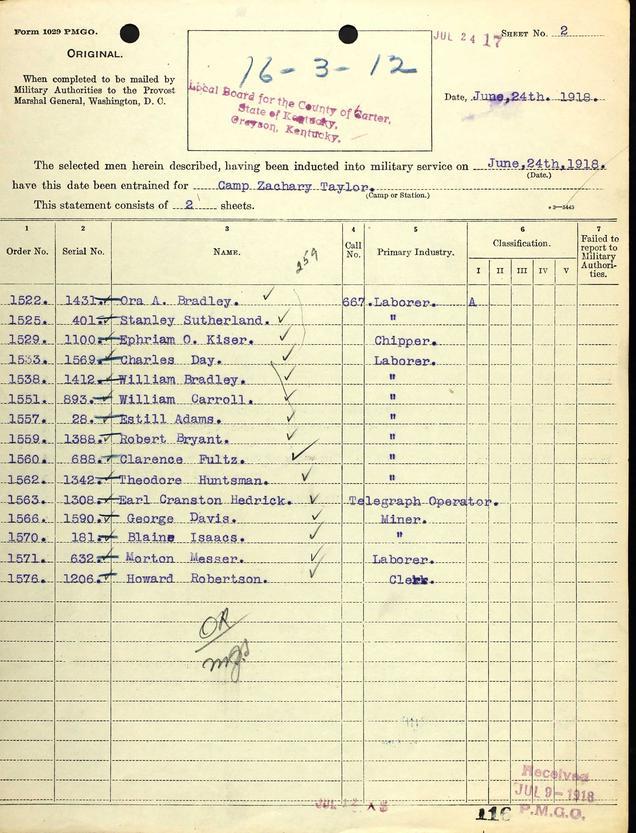 Form 1029 PMGO.
ORIGINAL.
When completed to be mailed by
Military Authorities to the Provost
Marshal General, Washington, D. C.
16-3-12
Local Board for the County of Carter,
State of Kentucky,
Grayson, Kentucky.
JUL 24 17
SHEET No. 2
Date, June,24th. 1918.
The selected men herein described, having been inducted into military service on June,24th,1918.
(Date.)
have this date been entrained for Camp Zachary Taylor.
(Camp or Station.)
This statement consists of 2 sheets.
1 2 3 4 5 6 7
Order No. Serial No. NAME. Call No. Primary Industry. Classification. Failed to report to Military Authorities.
I II III IV V
259
1522. 1431. Ora A. Bradley. 667. Laborer. A
1525. 401. Stanley Sutherland. "
1529. 1100. Ephriam O. Kiser. Chipper.
1533. 1569. Charles Day. Laborer.
1538. 1412. William Bradley. "
1551. 893. William Carroll. "
1557. 28. Estill Adams. "
1559. 1388. Robert Bryant. "
1560. 688. Clarence Fultz. "
1562. 1342. Theodore Huntsman. "
1563. 1308. Earl Cranston Hedrick. Telegraph Operator.
1566. 1590. George Davis. Miner.
1570. 181. Blaine Isaacs. "
1571. 632. Morton Messer. Laborer.
1576. 1206. Howard Robertson. Clerk.
OR
Received
JUL 9-1918
P.M.G.O.
116